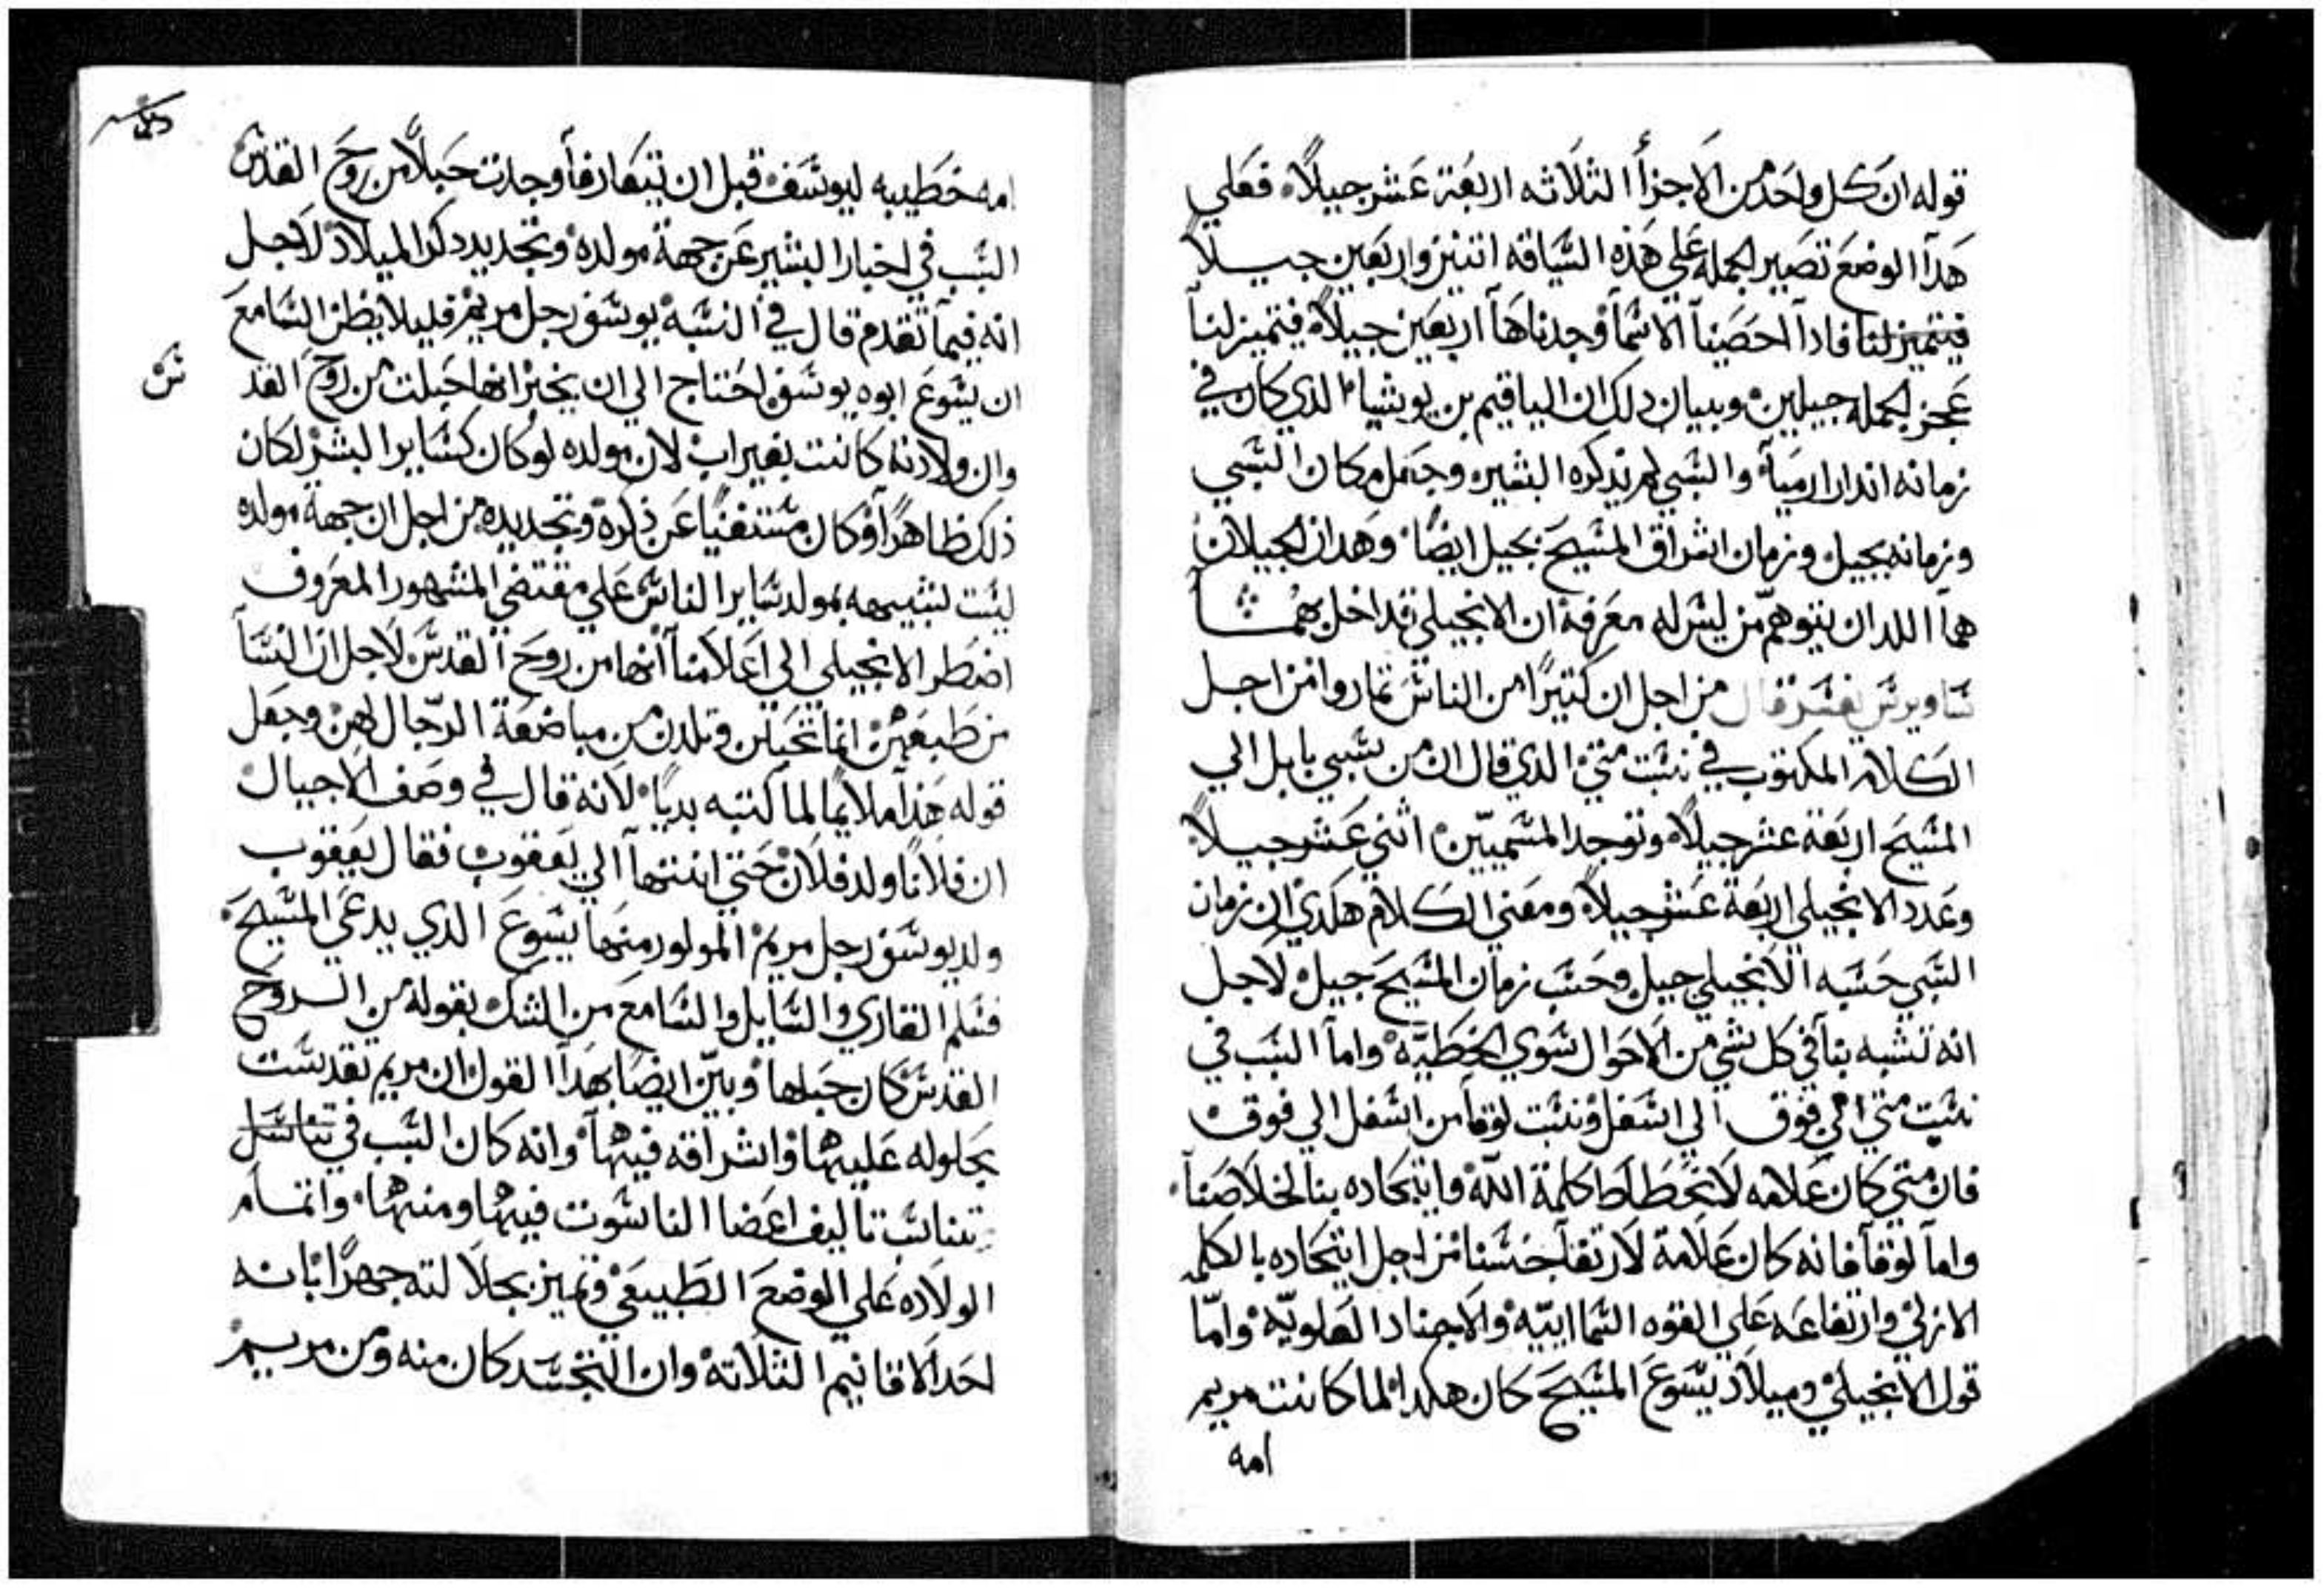 قوله ان كل واحد من الاجزأ الثلاثه اربعة عشر جيلاً فعلي
هدا الوضع تصير الجمله على هذه السياقه اتنين واربعين جيلاً
فيتميز لنا فادا احصينا الاسما وجدناها اربعين جيلاً فيتميز لنا
عجز الجمله جيلين وبيان دلك ان الياقيم بن يوشيا الدي كان في
زمانه اندار ارميا والسبي لم يدكره البشير وجعل مكان السبي
وزمانه بجيل وزمان اشراق المسيح بجيل ايضًا وهدان الجيلان
هما اللدان يتوهم من ليس له معرفة ان الانجيلي قد اخل بهما
ساويرس يفسر قال من اجل ان كتيرًا من الناس تماروا من اجل
الكلام المكتوب في نسبت متي الدي قال ان من سبي بابل الي
المسيح اربعة عشر جيلاً وتوجد المسميين اثني عشر جيلاً
وعدد الانجيلي اربعة عشر جيلاً ومعني الكلام هكدي ان زمان
السبي حسبه الانجيلي جيل وحسب زمان المسيح جيل لاجل
انه تشبه بنا في كل شي من الاحوال سوي الخطيّه واما السبب في
نسبت متي من فوق الي اسفل ونسبت لوقا من اسفل الي فوق
فان متي كان علامه لانحطاط كلمة الله واتحاده بنا لخلاصنا
واما لوقا فانه كان علامة لارتفاع جنسنا من اجل اتحاده بالكلمه
الازلي وارتفاعه على القوه السماييّه والاجناد العلويّه وامّا
قول الانجيلي وميلاد يسوع المسيح كان هكدا لما كانت مريم
امه
امه خطيبه ليوسف قبل ان يتعارفا وجدت حبلاً من روح القدس
السبب في اخبار البشير عن جهة مولده وتجديد دكر الميلاد لاجل
انه فيما تقدم قال في النسبه يوسف رجل مريم فليلا يظن السامع
ان يسوع ابوه يوسف احتاج الي ان يخبر انها حبلت من روح القد
س
وان ولادته كانت بغير اب لان مولده لو كان كساير البشر لكان
دلك ظاهرًا وكان مستغنيًا عن ذكره وتجديده من اجل ان جهة مولده
ليست لشبيهه بمولد ساير الناس على مقتضي المشهور المعروف
اضطر الانجيلي الي اعلامنا انها من روح القدس لاجل ان النسا
من طبعهن انما تحبلن وتلدن من مباضعة الرجال لهن وجعل
قوله هذا ملايمًا لما كتبه بديًا لانه قال في وصف الاجيال
ان فلانًا ولد فلان حتي انتها الي يعقوب فقال يعقوب
ولد يوسف رجل مريم المولود منها يسوع الذي يدعي المسيح
فسلم القاري والسايل والسامع من الشك بقوله من الروح
القدس كان حبلها وبين ايضًا بهدا القول ان مريم تقدست
بحلوله عليها واشراقه فيها وانه كان السبب في تناسل
تناسب تاليف اعضا الناسوت فيها ومنها واتمام
الولاده على الوضع الطبيعي وتميز بجلالته جهرًا بانه
احد الاقانيم الثلاتة وان التجسد كان منه ومن مريم